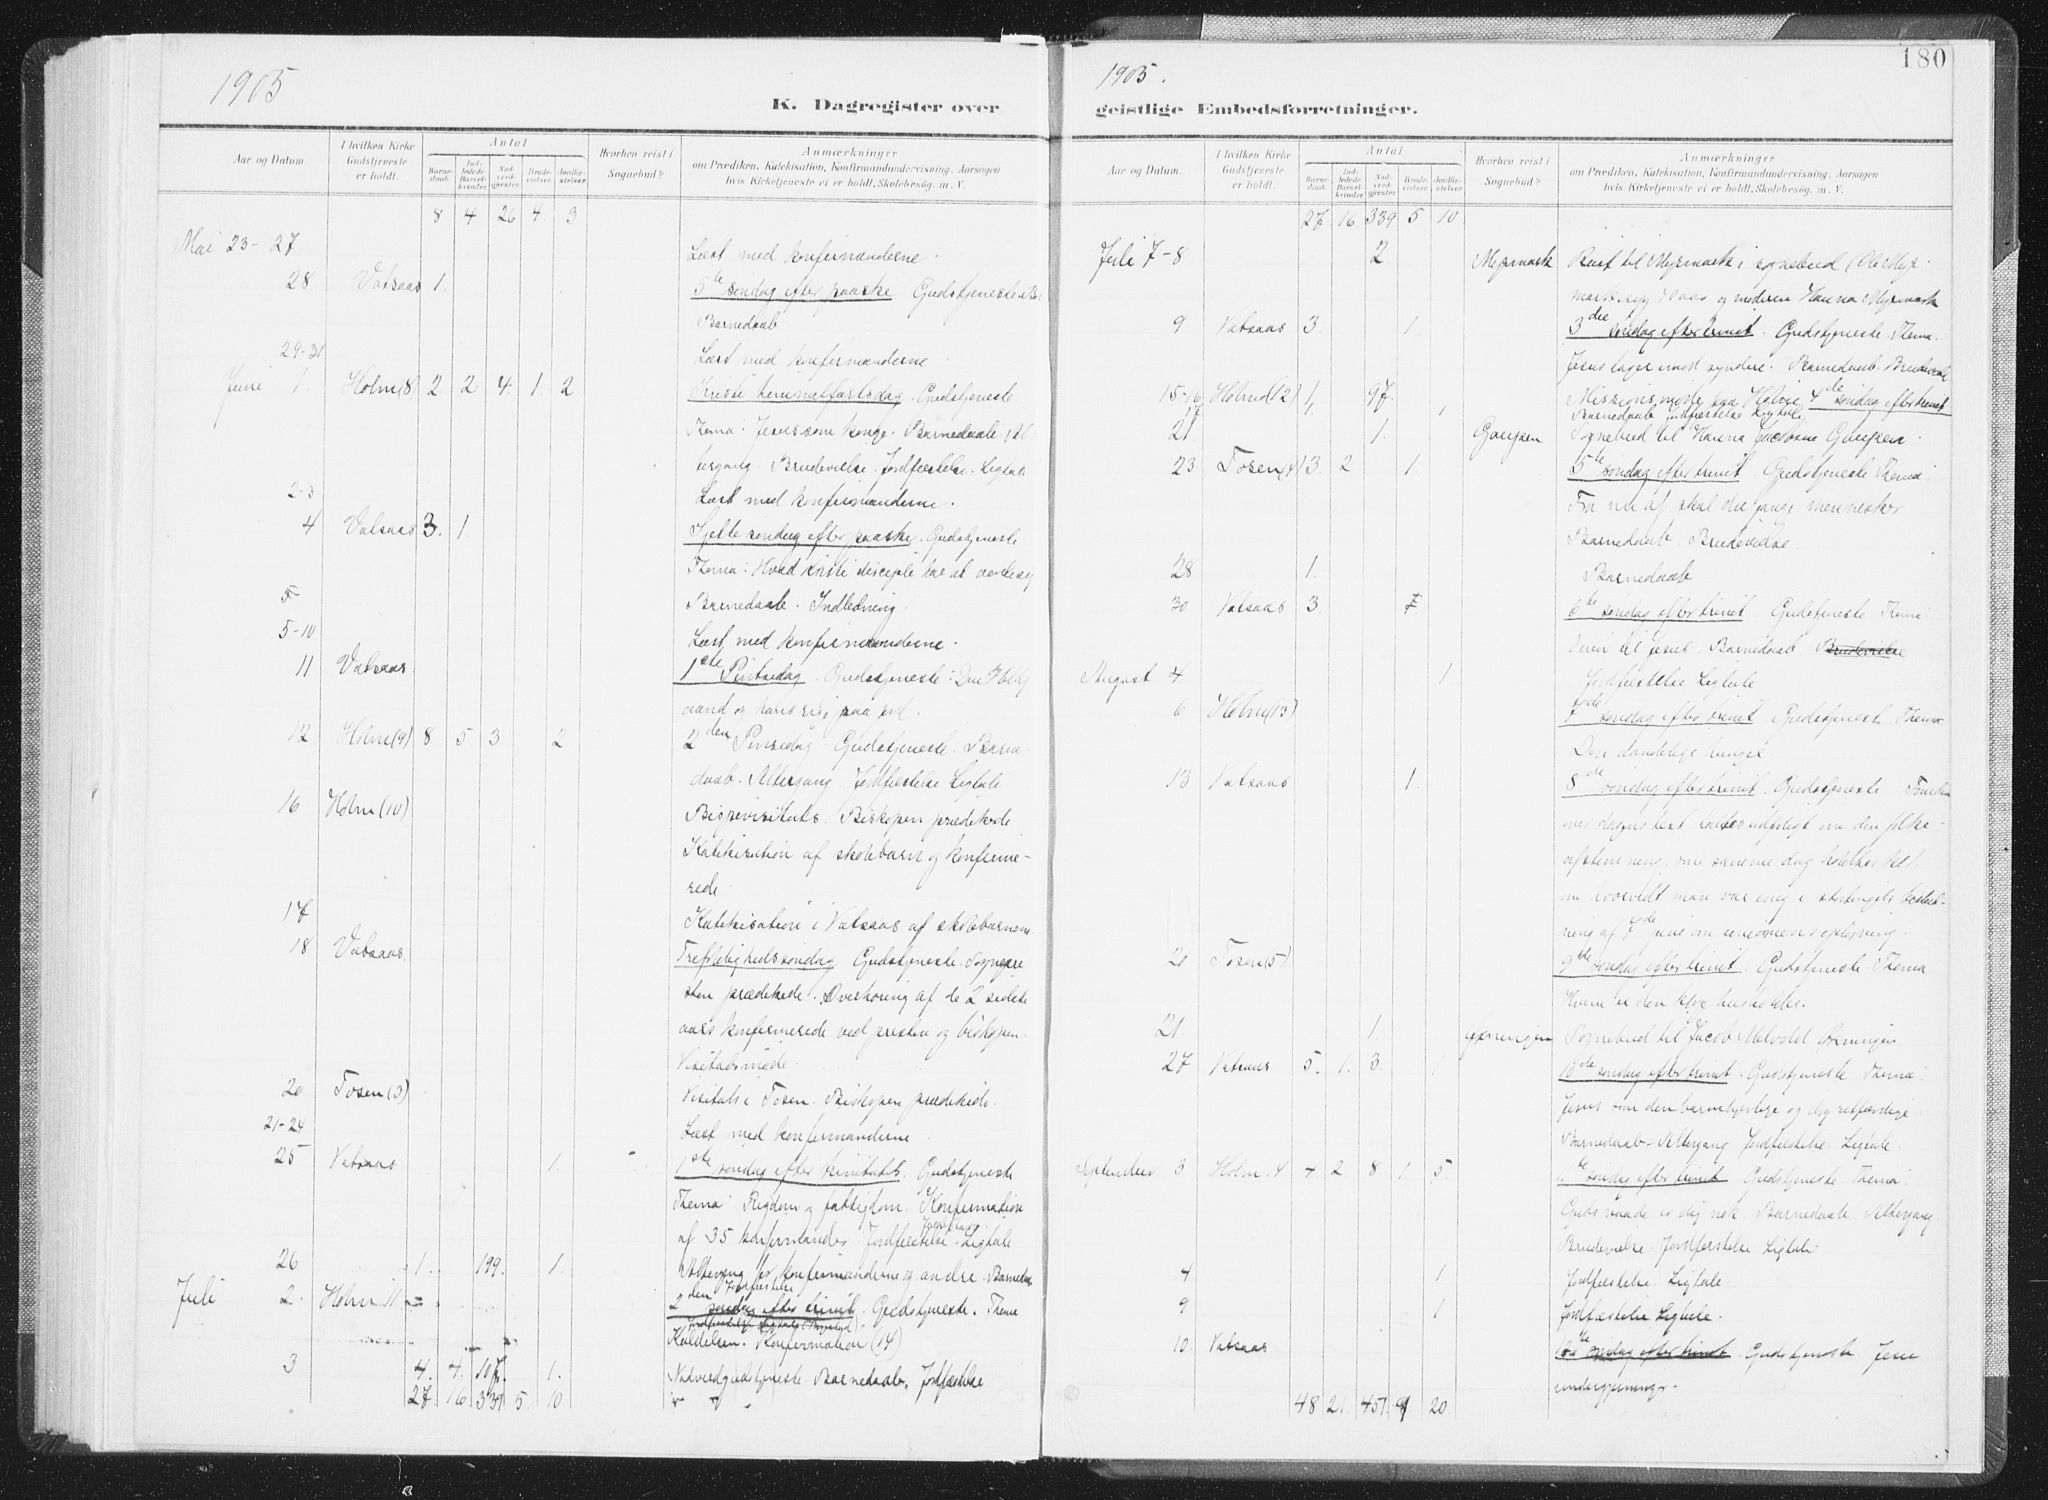 1905
K. Dagregister over
Aar og Datum.
I hvilken Kirke Gudstjeneste er holdt.
Antal
Barnedaab.
Indledede Barselkvinder.
Nadverdgjester.
Brudevielser.
Jordfæstelser
Hvorhen reist i Sognebud?
Anmærkninger
om Prædiken, Katekisation, Konfirmandundervisning, Aarsagen
hvis Kirketjeneste ei er holdt, Skolebesøg. m. V.
8 4 26 4. 3
Mai 23-27 Læst med konfirmanderne.
28 Vatsaas 1. 5te søndag efter paaske Gudstjeneste
Barnedaab.
29-31 Læst med konfirmanderne.
Juni 1. Holm (8 2 2 4. 1. 2 Kristi himmelfartsdag. Gudstjeneste
Thema: Jesus som konge. Barnedaab. Al-
tergang. Brudevielse. Jordfæstelse. Ligtale
2-3 Læst med konfirmanderne.
4 Vatsaas 3. 1. Sjette søndag efter paaske. Gudstjeneste
Thema: Hvad Kristi disciple har at vente sig
5 Barnedaab. Indledning.
5-10 Læst med konfirmanderne.
11 Vatsaas. 1ste Pintsedag. Gudstjeneste: Den Hellig
aand og hans paa jord.
12 Holm (9) 8 5 3 2 2den Pinsedag Gudstjeneste. Barne-
daab. Altergang. Jordfæstelse Ligtale
16 Holm (10) Bispevisitats. Biskopen prædikede
Katekisation af skolebarn og konfirme-
rede.
17 Katekisation i Vatsaas af skolebarnene.
18 Vatsaas. Trefoldighedssøndag Gudstjeneste. Sognepre-
sten prædikede. Overhøring af de 2 sidste
aars konfirmerede ved presten og biskopen.
Visitatsmøde.
20 Tosen (3) Visitats i Tosen. Biskopen prædikede.
21-24 Læst med konfirmanderne.
25 Vatsaas 1. 1ste søndag efter trinitatis. Gudstjeneste
Thema: Rigdom og fattigdom. Konfirmation
af 35 konfirmander. Jordfæstelse. Ligtale
26 1. 199. 1. Altergang for konfirmanderne og andre. Barnedaab
Jordfæstelse
Juli 2. Holm 11 2den søndag efter trinit. Gudstjeneste. Thema
Kaldelsen. Konfirmation (14)
3 4. 4. 107. 1. Nadverdgudstjeneste. Barnedaab. Jordfæstelse
27. 16 339 5. 10
1905.
180
geistlige Embedsforretninger.
Aar og Datum.
I hvilken Kirke Gudstjeneste er holdt.
Antal
Barnedaab.
Indledede Barselkvinder
Nadverdgjester
Brudevielser.
Jordfæstelser
Hvorhen reist i Sognebud?
Anmærkninger
om Prædiken, Katekisation, Konfirmandundervisning, Aarsagen
hvis Kirketjeneste ei er holdt, Skolebesøg. m. V.
27. 16 339 5 10
Juli 7-8 2. Myrmark Reist til Myrmark i sognebud (Ole Myr-
mark, syg 70 aar og moderen Hanna Myrmark
9 Vatsaas 3. 1. 3die søndag efter trinit. Gudstjeneste. Thema.
Jesus tager mod syndere. Barnedaab. Brudevielse
15-16 Holm (12) 1. 97. Missionsmøde paa Holm 4de søndag efter trinit
17 1. 1 Barnedaab Jordfæstelse Ligtale
21 1. Gaupen Sognebud til Hanna Jacobsen Gaupen.
23 Tosen (4) 3. 2 1. 5te søndag efter trinit. Gudstjeneste Thema:
Fra nu af skal du fange mennesker
Barnedaab. Brudevielse.
28 1. Barnedaab
30 Vatsaas 3. 6te søndag efter trinit. Gudstjeneste Thema:
Veien til Jesus. Barnedaab Brudevielse
August 4 1 Jordfæstelse Ligtale
6 Holm (13) 7de søndag efter trinit Gudstjeneste. Thema
13 Vatsaas 1. 8de søndag efter trinit. Gudstjeneste.
over dagens text om den folke-
afstemning, om samme dag
om hvorvidt man var enig i stortingets beslut-
ning af 7de juni om unionens opløsning.
20 Tosen (5) 9de søndag efter trinit. Gudstjeneste. Thema
Hvem er den husholder.
21. 1. Sognebud til Jacob
27 Vatsaas 5. 1. 3. 1 10de søndag efter trinit. Gudstjeneste. Thema:
Jesus som den barmhjertige og dog retfærdige.
Barnedaab. Altergang Jordfæstelse. Ligtale.
September 3 Holm 14 4. 2 8 1. 5. søndag efter trinit. Gudstjeneste. Thema:
Guds naade er dig nok. Barnedaab. Altergang.
Brudevielse. Jordfæstelse Ligtale
4 1 Jordfæstelse. Ligtale.
9 1 Jordfæstelse Ligtale.
10. Vatsaas søndag efter trinit. Gudstjeneste. Jesu
undergjerninger.
48 21. 457. 20.